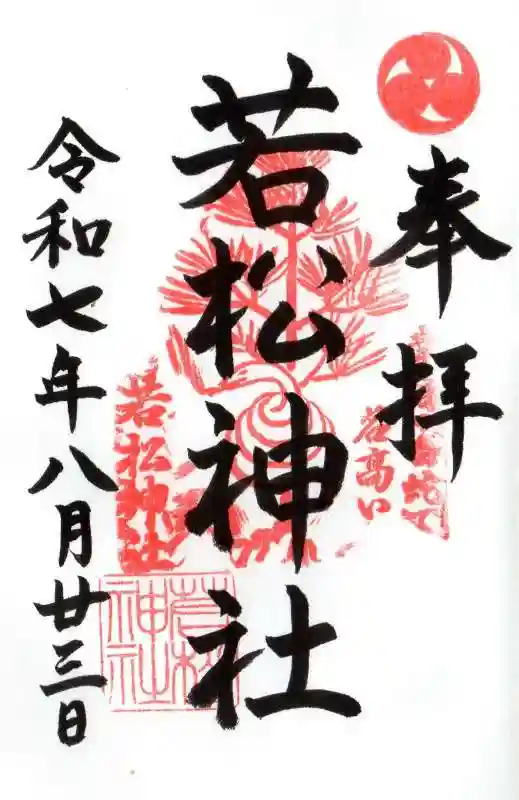 奉拝
若松神社
令和七年八月廿三日
若松神社
若松神社